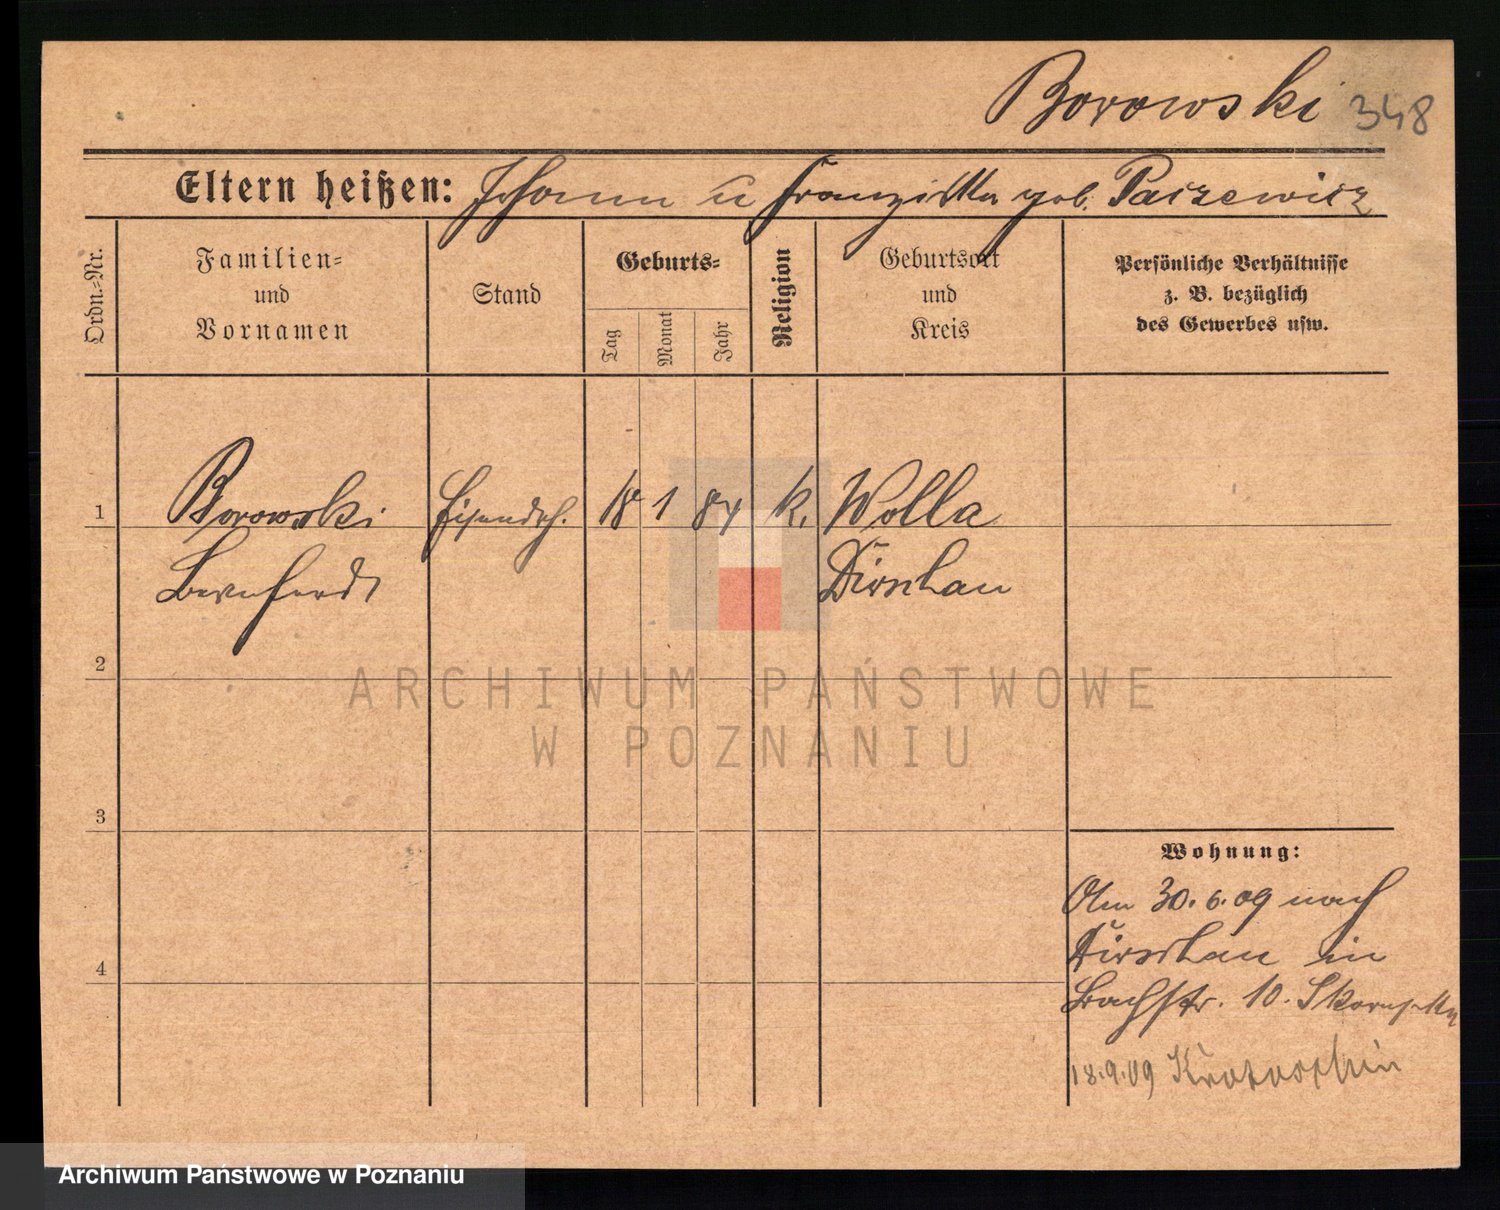 Borowski 348
Eltern heißen: Johann u Franziska geb. Paszewicz
Ordn.-Nr.
Familien-
und
Vornamen
Stand
Geburts-
Tag
Monat
Jahr
Religion
Geburtsort
und
Kreis
Persönliche Verhältnisse
z. B. bezüglich
des Gewerbes usw.
1 Borowski Eisendrh. 18 1 84 k. Wolla
Bernhardt Dirschau
2
3
4
Wohnung:
Am 30.6.09 nach
Dirschau in
Bachstr. 10.
18.9.09 Krotoschin
ARCHIWUM PAŃSTWOWE
W POZNANIU
Archiwum Państwowe w Poznaniu